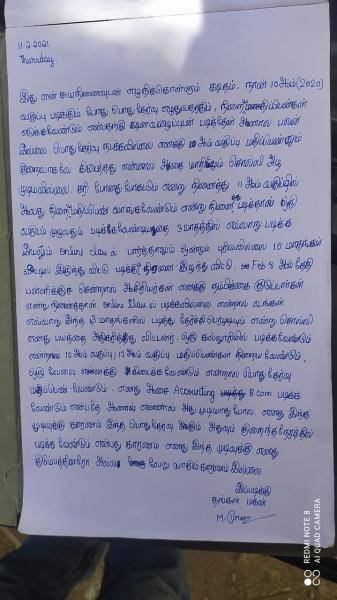 11.2.2021
Thursday.
இது என் சுயநினைவுடன் எழுதிக்கொள்ளும் கடிதம். நான் 10ஆம் (2020)
வகுப்பு படிக்கும் போது பொதுதேர்வு எழுதுவதற்கும், நிறைய மதிப்பெண்கள்
எடுக்கவேண்டும் என்பதற்கு கடினஉழைப்புடன் படித்தேன் ஆனால் பலன்
இல்லை பொதுதேர்வு நடக்கவில்லை எனக்கு 10ஆம் வகுப்பு மதிப்பெண்ணும்
குறைவாகவே கிடைத்தது என்னால் அதை சொல்லி அழ
முடியவில்லை. சரி போனது போகட்டும் என்று நினைத்து 11 ஆம் வகுப்பில்
அதிக மதிப்பெண் வாங்கவேண்டும் என்று நினைத்தால் ஒரு
வருடம் முழுவதும் படிக்கவேண்டியதை 3 மாதத்தில் எவ்வாறு படிக்க
இயலும் online class ல் பார்த்தாலும் ஒன்றும் புரியவில்லை 10 மாதங்கள்
வீட்டில் இருந்து விட்டு படிக்கும் திறனை இழந்து விட்டேன். Feb 8 ஆம் தேதி
பள்ளிக்குச் சென்றால் ஆசிரியர்கள் எனக்கு நம்பிக்கை கொடுப்பார்கள்
என்று நினைத்தால் online class ல் படிக்கவில்லை என்றால் உங்கள்
எவ்வாறு இந்த 3 மாதங்களில் படித்து தேர்ச்சி பெறமுடியும் என்று சொல்லி
எனது பயத்தை அதிகரித்து விட்டனர். ஒரு கல்லூரியில் படிக்கவேண்டும்
என்றால் 10ஆம் வகுப்பு, 12ஆம் வகுப்பு மதிப்பெண்கள் நிறைய வேண்டும்.
ஒரு வேலை எனக்கு கிடைக்க வேண்டும் என்றால் பொதுதேர்வு
மதிப்பெண் வேண்டும். எனது ஆசை Accounting B.com படிக்க
வேண்டும் என்பதே ஆனால் என்னால் அது முடியாது போல. எனது இந்த
முடிவுக்கு காரணம் இந்த பொதுதேர்வு ஆகும் அதுவும் குறைந்தநேரத்தில்
படிக்க வேண்டும் என்பது காரணம் எனது இந்த முடிவுக்கு எனது
குடும்பத்தினரோ அல்லது வேறு யாரும் காரணம் இல்லை
இப்படிக்கு
தங்கள் மகன்
REDMI NOTE 8
AI QUAD CAMERA